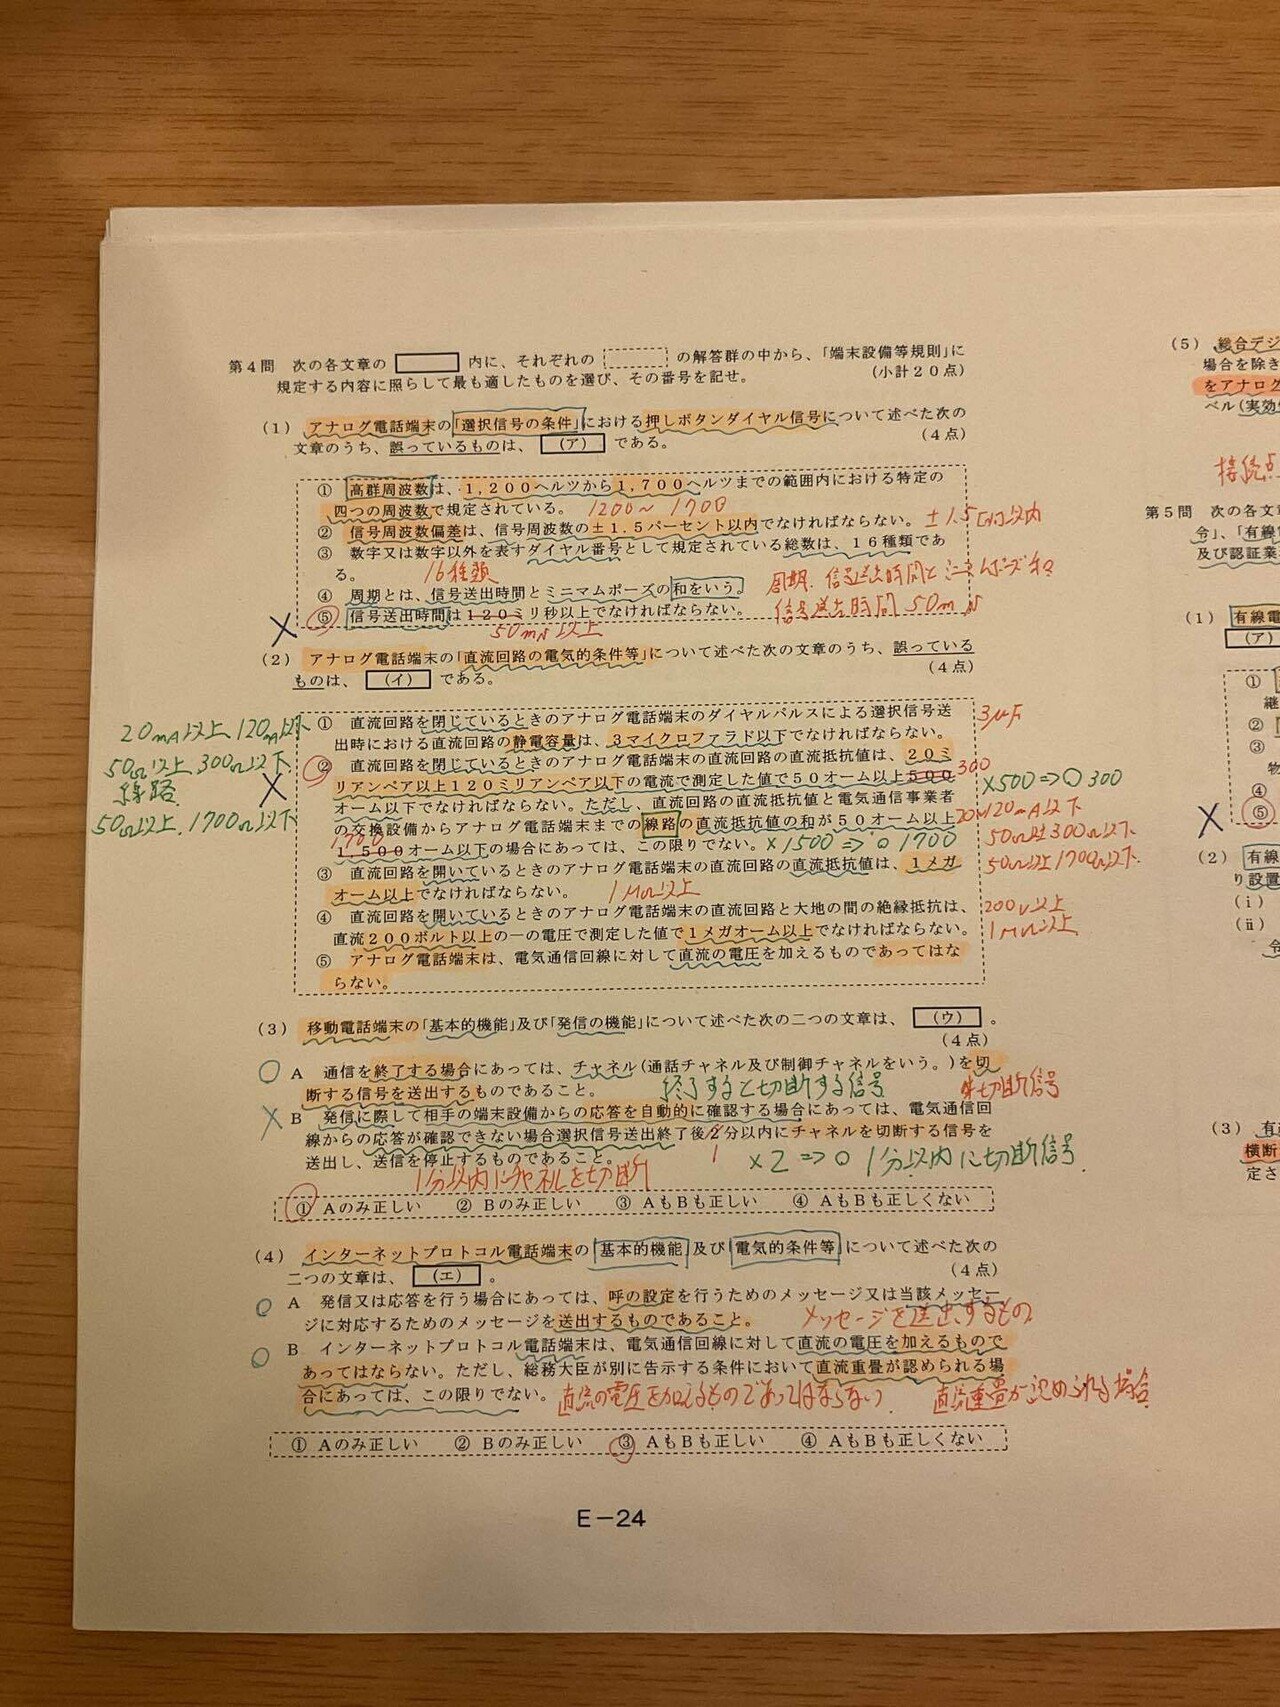 第4問 次の各文章の 内に、それぞれの の解答群の中から、「端末設備等規則」に
規定する内容に照らして最も適したものを選び、その番号を記せ。 (小計20点)
(1) アナログ電話端末の「選択信号の条件」における押しボタンダイヤル信号について述べた次の
文章のうち、誤っているものは、 (ア) である。 (4点)
① 高群周波数は、1,200ヘルツから1,700ヘルツまでの範囲内における特定の
四つの周波数で規定されている。 1200～1700
② 信号周波数偏差は、信号周波数の±1.5パーセント以内でなければならない。 ±1.5 以内
③ 数字又は数字以外を表すダイヤル番号として規定されている総数は、16種類であ
る。 16種類
④ 周期とは、信号送出時間とミニマムポーズの和をいう。 周期 信号送出時間とミニマムポーズ 和
× ⑤ 信号送出時間は120ミリ秒以上でなければならない。 信号送出時間 50m
50m 以上
(2) アナログ電話端末の「直流回路の電気的条件等」について述べた次の文章のうち、誤っている
ものは、 (イ) である。 (4点)
① 直流回路を閉じているときのアナログ電話端末のダイヤルパルスによる選択信号送 3μF
出時における直流回路の静電容量は、3マイクロファラド以下でなければならない。
20mA以上120mA以下
50Ω以上 300Ω以下
線路
50Ω以上、1700Ω以下
×
② 直流回路を閉じているときのアナログ電話端末の直流回路の直流抵抗値は、20ミ
リアンペア以上120ミリアンペア以下の電流で測定した値で50オーム以上500 300 ×500⇒○300
オーム以下でなければならない。ただし、直流回路の直流抵抗値と電気通信事業者
の交換設備からアナログ電話端末までの線路の直流抵抗値の和が50オーム以上 20～120mA以下
1700
1,500オーム以下の場合にあっては、この限りでない。 ×1500⇒○1700 50Ω以上300Ω以下
③ 直流回路を開いているときのアナログ電話端末の直流回路の直流抵抗値は、1メガ 50Ω以上1700Ω以下
オーム以上でなければならない。 1MΩ以上
④ 直流回路を開いているときのアナログ電話端末の直流回路と大地の間の絶縁抵抗は、 200V以上
直流200ボルト以上の一の電圧で測定した値で1メガオーム以上でなければならない。 1MΩ以上
⑤ アナログ電話端末は、電気通信回線に対して直流の電圧を加えるものであってはな
らない。
(3) 移動電話端末の「基本的機能」及び「発信の機能」について述べた次の二つの文章は、 (ウ) 。
(4点)
○ A 通信を終了する場合にあっては、チャネル(通話チャネル及び制御チャネルをいう。)を切
断する信号を送出するものであること。 終了すると切断する信号 切断信号
× B 発信に際して相手の端末設備からの応答を自動的に確認する場合にあっては、電気通信回
線からの応答が確認できない場合選択信号送出終了後2分以内にチャネルを切断する信号を
送出し、送信を停止するものであること。 1 ×2⇒○ 1分以内に切断信号
1分以内にチャネルを切断
① Aのみ正しい ② Bのみ正しい ③ AもBも正しい ④ AもBも正しくない
(4) インターネットプロトコル電話端末の「基本的機能」及び「電気的条件等」について述べた次の
二つの文章は、 (エ) 。 (4点)
○ A 発信又は応答を行う場合にあっては、呼の設定を行うためのメッセージ又は当該メッセー
ジに対応するためのメッセージを送出するものであること。 メッセージを送出するもの
○ B インターネットプロトコル電話端末は、電気通信回線に対して直流の電圧を加えるもので
あってはならない。ただし、総務大臣が別に告示する条件において直流重畳が認められる場
合にあっては、この限りでない。 直流の電圧を加えるものであってはならない 直流重畳が認められる場合
① Aのみ正しい ② Bのみ正しい ③ AもBも正しい ④ AもBも正しくない
E－24
(5) 総合デジ
場合を除き
をアナログ
ベル(実効
接続点
第5問 次の各文章
令」、「有線
及び認証業
(1) 有線電
(ア)
①
継
②
③
物
④
× ⑤
(2) 有線
り設置
(ⅰ)
(ⅱ)
令
(3) 有
横断
定さ